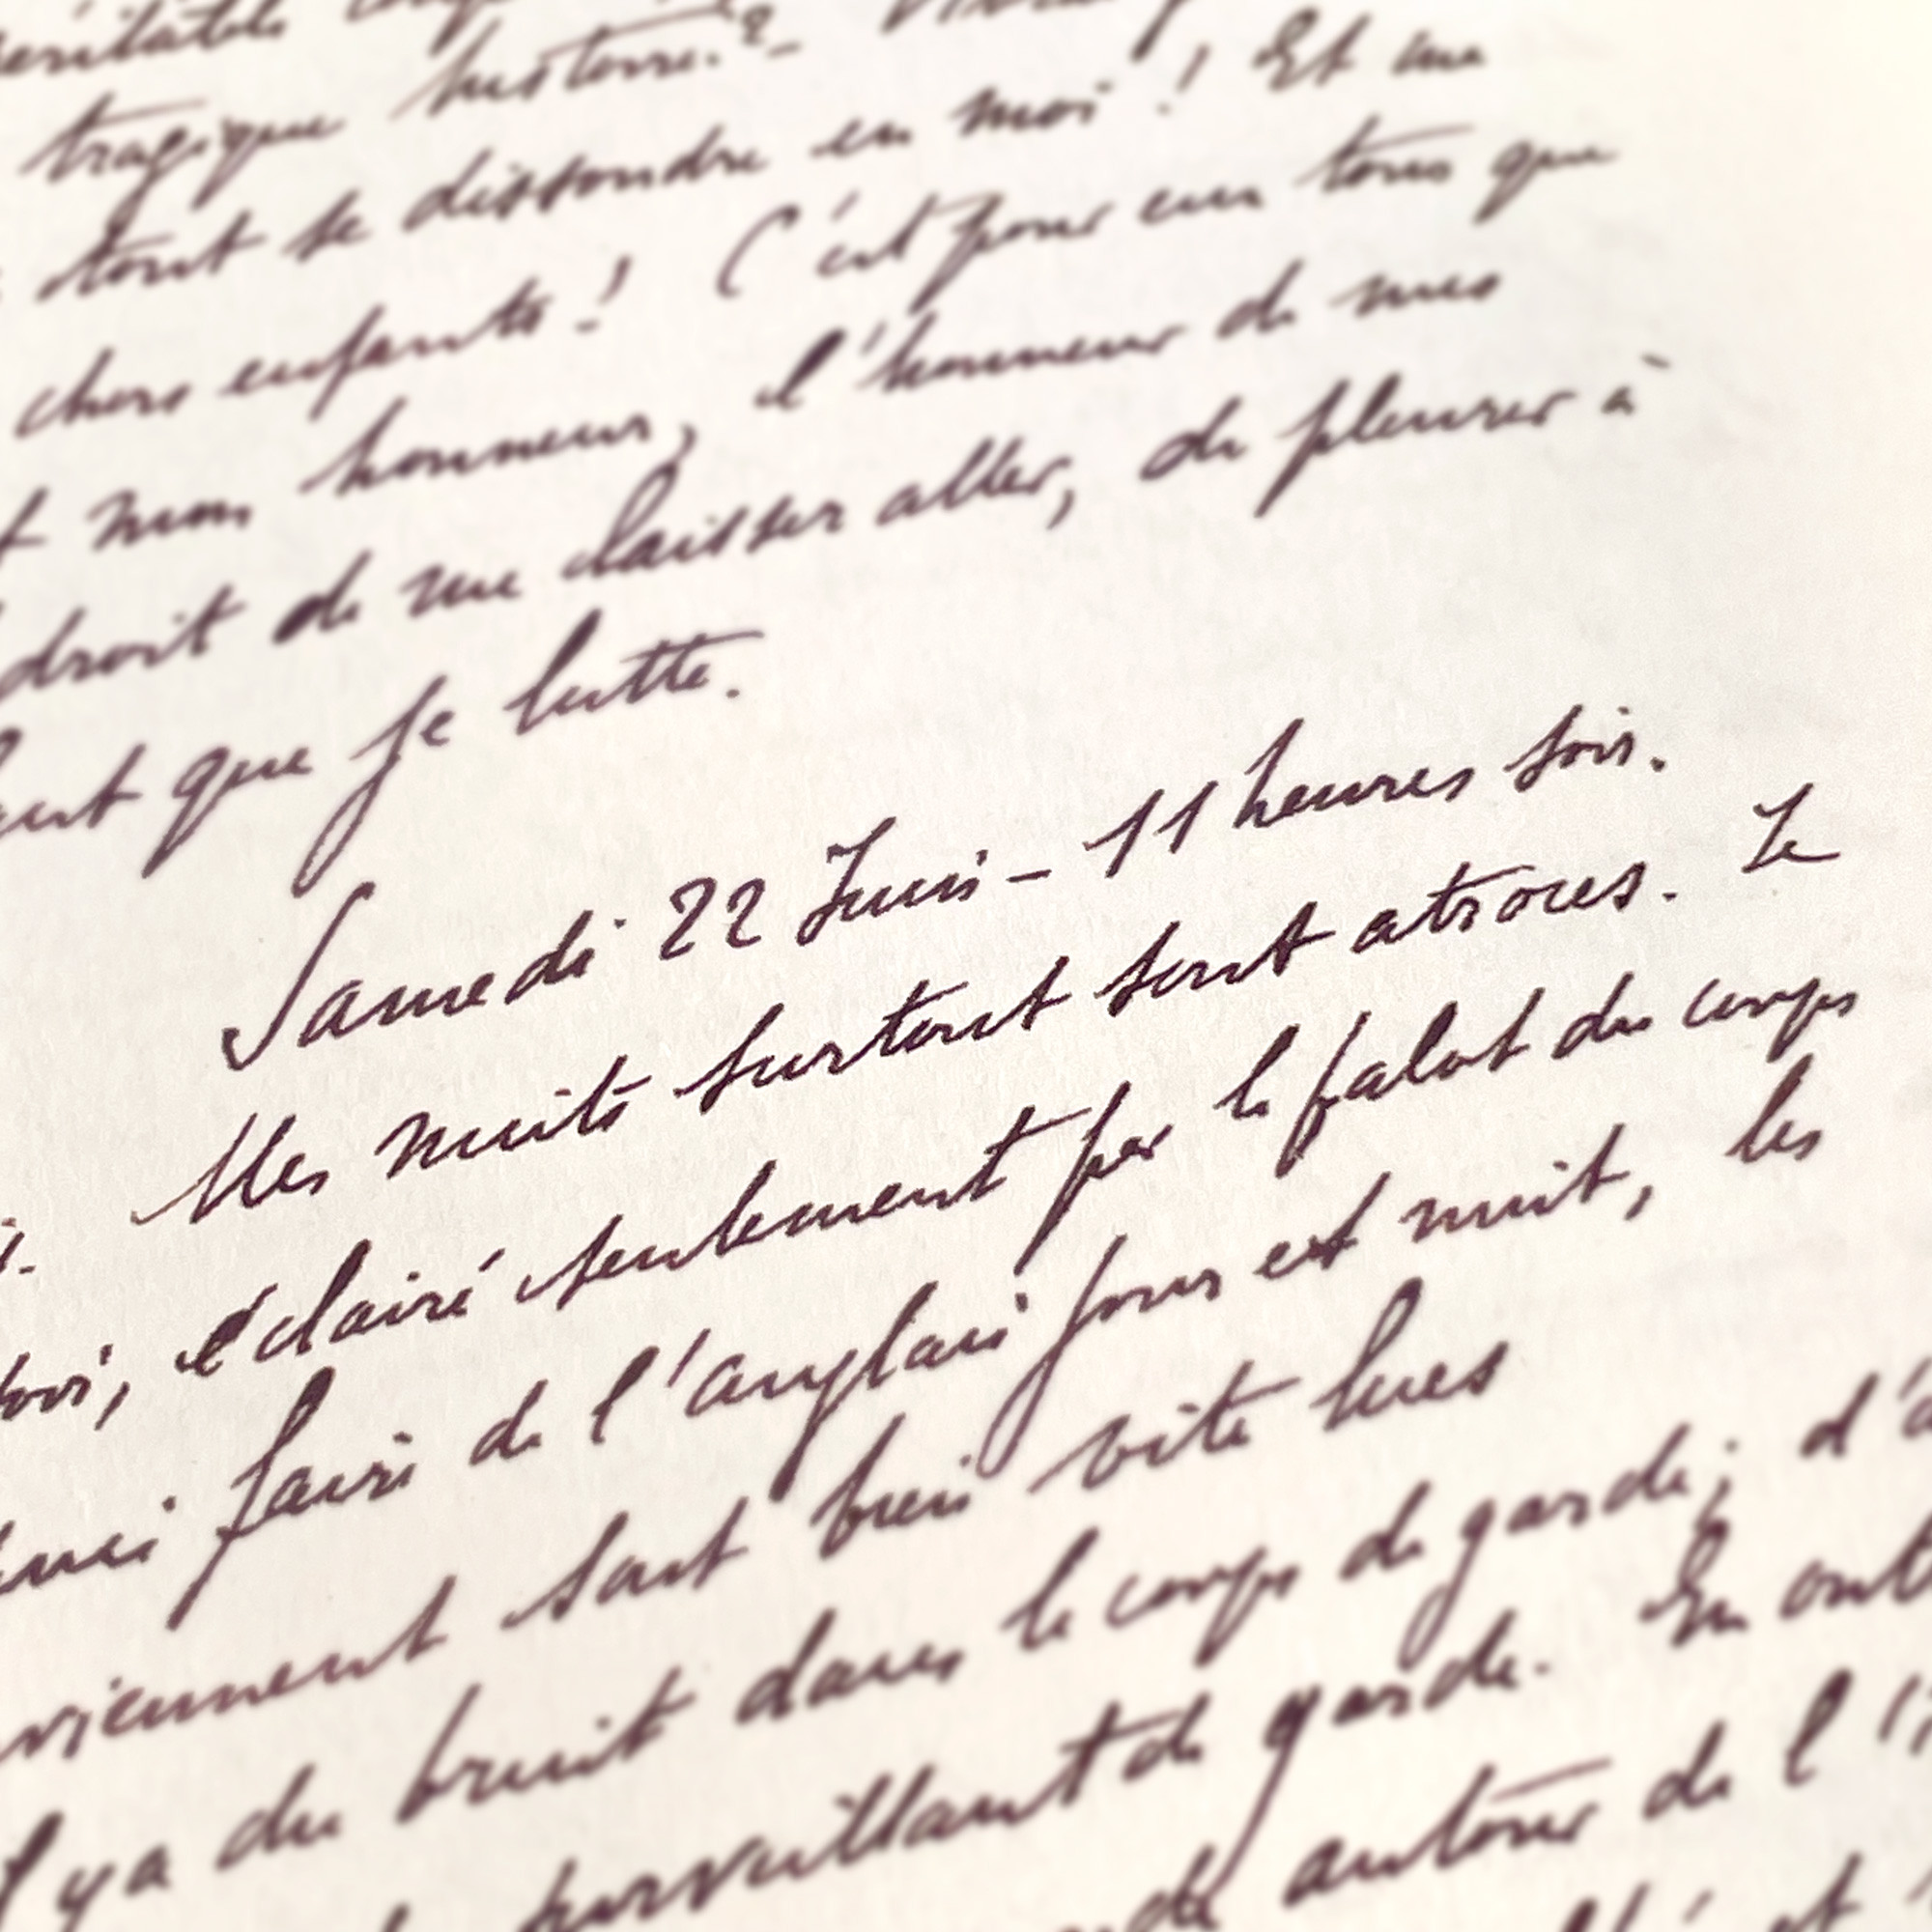 tragique histoire ?
tout se dissoudre en moi ! Et ma
chers enfants ! C'est pour eux tous que
mon honneur, l'honneur de mes
droit de me laisser aller, de pleurer à
que je lutte.
Samedi 22 Juin - 11 heures soir.
Mes nuits surtout sont atroces. Je
éclairé seulement par le falot du corps
faire de l'anglais jour et nuit, les
sont bien vite lues
y a du bruit dans le corps de garde ;
surveillant de garde. En
autour de l'